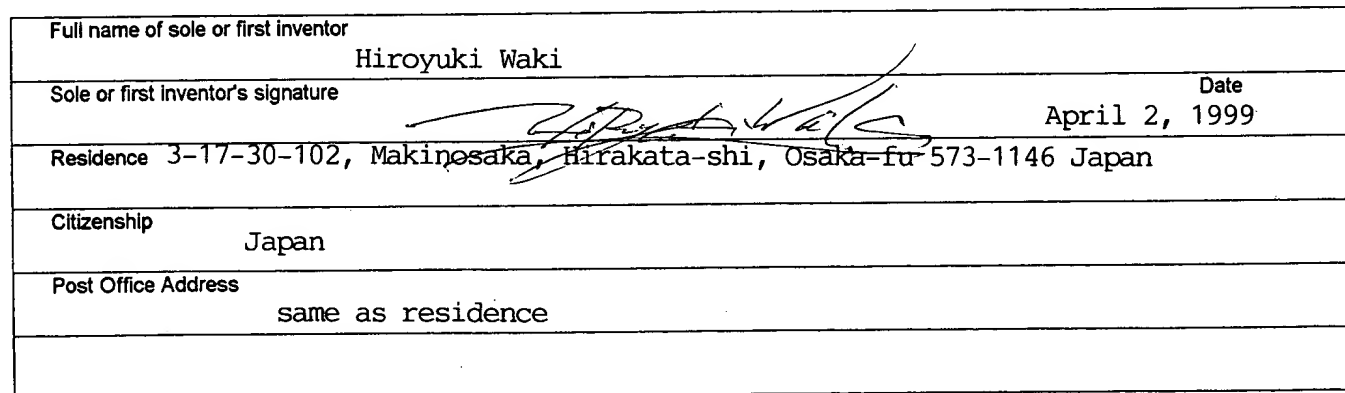 Full name of sole or first inventor
Hiroyuki Waki
Sole or first inventor's signature
Date
Hiroyuki Waki
April 2, 1999
Residence 3-17-30-102, Makinosaka, Hirakata-shi, Osaka-fu 573-1146 Japan
Citizenship
Japan
Post Office Address
same as residence